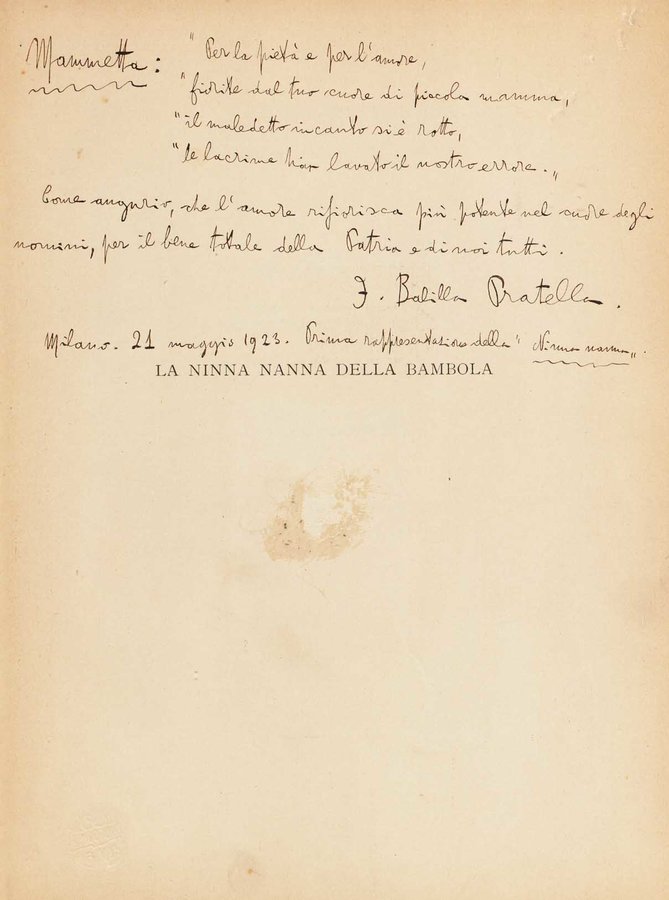 Mammetta: " Per la pietà e per l'amore,
" fiorite dal tuo cuore di piccola mamma,
" il maledetto incanto si è rotto,
" le lacrime han lavato il nostro errore. „
Come augurio, che l'amore rifiorisca più potente nel cuore degli
uomini, per il bene totale della Patria e di noi tutti.
F. Balilla Pratella.
Milano. 21 maggio 1923. Prima rappresentazione della " Ninna nanna „.
LA NINNA NANNA DELLA BAMBOLA